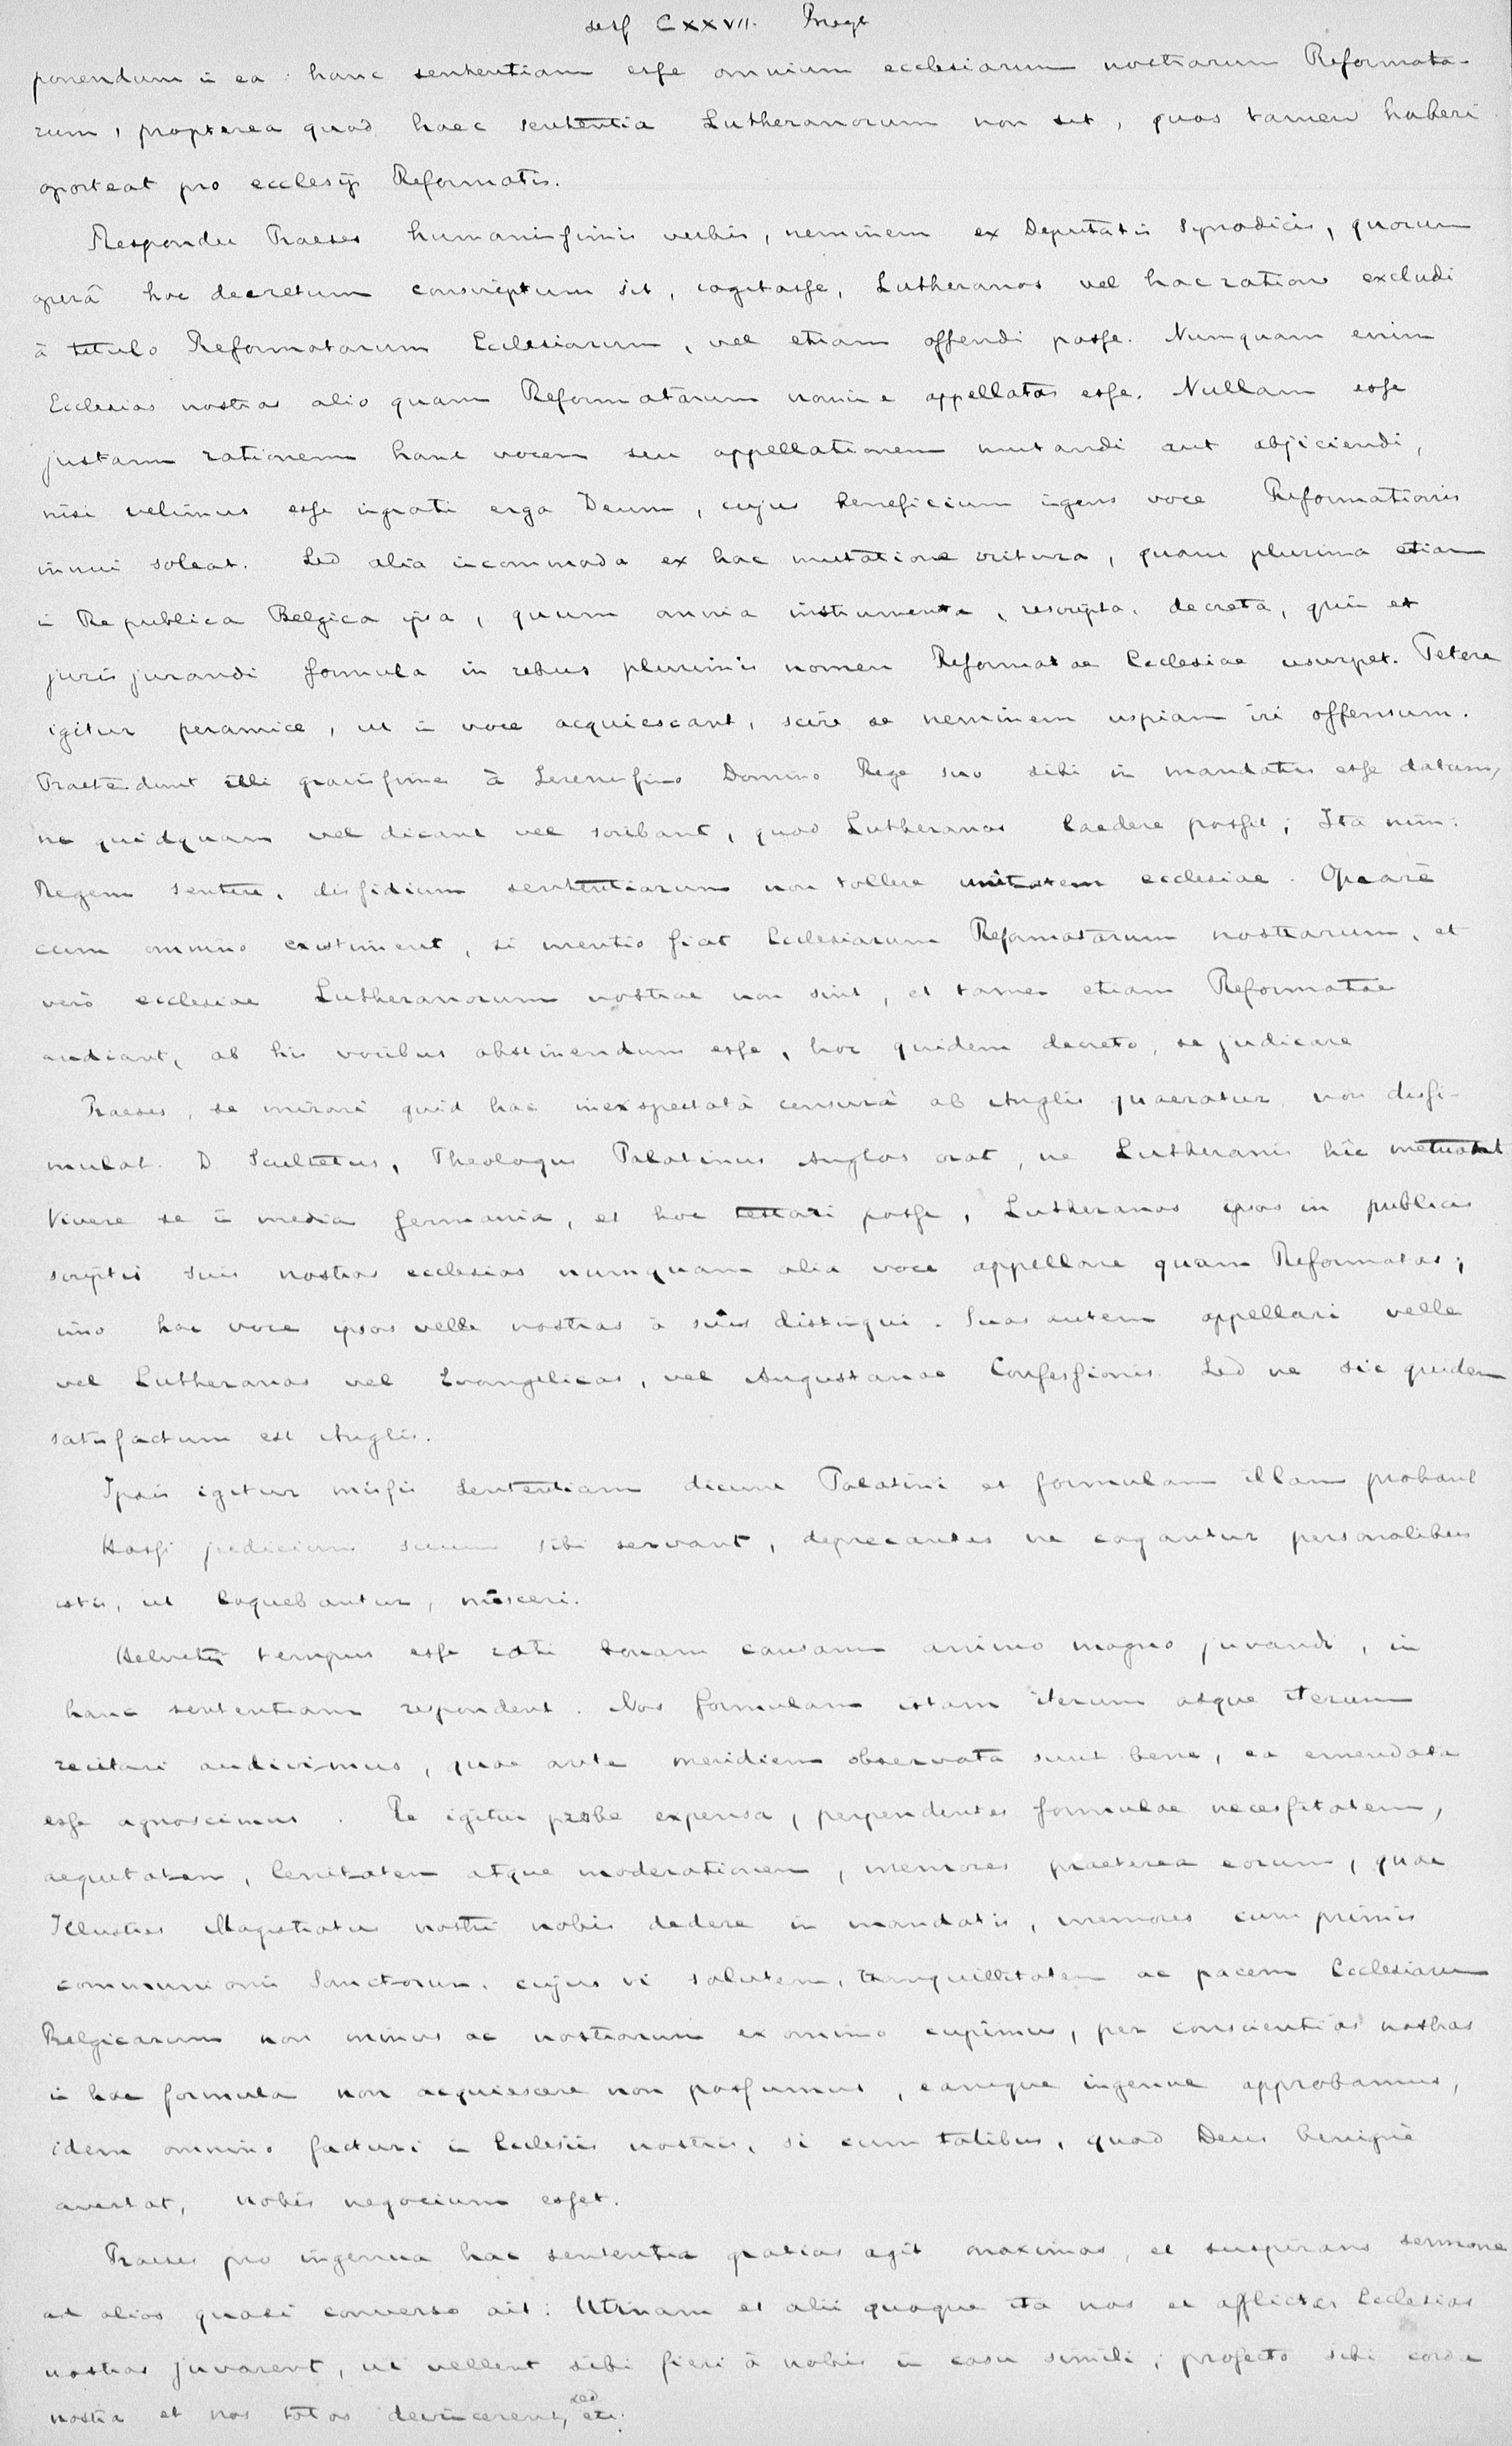 sess CXXVII.
ponendum in ea: hanc sententiam esse omnium ecclesiarum nostrarum Reformata-
rum, propterea quod haec sententia Lutheranorum non sit, quos tamen haberi
oporteat pro ecclesijs Reformatis.
Respondet Praeses humanissimis verbis, neminem ex Deputatis Synodicis, quorum
operâ hoc decretum conscriptum sit, cogitasse, Lutheranos vel hac ratione excludi
à titulo Reformatarum Ecclesiarum, vel etiam offendi posse. Numquam enim
Ecclesias nostras alio quam Reformatarum nomine appellatas esse. Nullam esse
justam rationem hanc vocem seu appellationem mutandi aut abjiciendi,
nisi velimus esse ingrati erga Deum, cujus beneficium ingens voce Reformationis
innui soleat. Sed alia incommoda ex hac mutatione oritura, quam plurima etiam
in Republica Belgica ipsa, quum omnia instrumenta, rescripta, decreta, quin et
juris jurandi formula in rebus plurimis nomen Reformatae Ecclesiae usurpet. Petere
igitur peramice, ut in voce acquiescant, scire se neminem uspiam iri offensum.
Praetendunt illi gravissime à Serenissimo Domino Rege suo sibi in mandatis esse datum,
ne quidquam vel dicant vel scribant, quod Lutheranos laedere possit; Ita nim:
Regem sentire, dissidium sententiarum non tollere unitatem ecclesiae. Quare
cum omnino existiment, si mentio fiat Ecclesiarum Reformatarum nostrarum, et
verò ecclesiae Lutheranorum nostrae non sint, et tamen etiam Reformatae
audiant, ab his vocibus abstinendum esse, hoc quidem decreto, se judicare
Praeses, se mirari quid hac inexspectatâ censurâ ab Anglis quaeratur, non dissi-
mulat. D Scultetus, Theologus Palatinus Anglos orat, ne Lutheranis hîc metuant
Vivere se in media Germania, et hoc testari posse, Lutheranos ipsos in publicis
scriptis suis nostras ecclesias numquam alia voce appellare quam Reformatas;
imo hac voce ipsos velle nostras à suis distingui. Suas autem appellari velle
vel Lutheranas vel Evangelicas, vel Augustanae Confessionis. Sed ne sic quidem
satisfactum est Anglis.
Ipsis igitur missis sententiam dicunt Palatini et formulam illam probant
Hassi judicium suum sibi servant, deprecantes ne cogantur personalibus
istis, ut loquebantur, misceri.
Helvetij tempus esse rati bonam causam animo magno juvandi, in
hanc sententiam respondent. Nos formulam istam iterum atque iterum
recitari audivimus, quae ante meridiem observata sunt bene, ea emendata
esse agnoscimus. Re igitur probe expensa, perpendentes formulae necessitatem,
aequitatem, lenitatem atque moderationem, memores praeterea eorum, quae
Illustres Magistratus nostri nobis dedere in mandatis, memores cum primis
communionis Sanctorum, cujus vi salutem, tranquillitatem ac pacem Ecclesiarum
Belgicarum non minus ac nostrarum ex animo cupimus, per conscientias nostras
in hac formula non acquiescere non possumus, eamque ingenue approbamus,
idem omnino facturi in Ecclesiis nostris, si cum talibus, quod Deus benignè
avertat, nobis negocium esset.
Praeses pro ingenua hac sententia gratias agit maximas, et suspirans sermone
ad alios quasi converso ait: Utinam et alii quoque ita nos et afflictas Ecclesias
nostras juvarent, ut vellent sibi fieri à nobis in casu simili; profecto sibi corda
nostra et nos totos devincerent, sed etc.